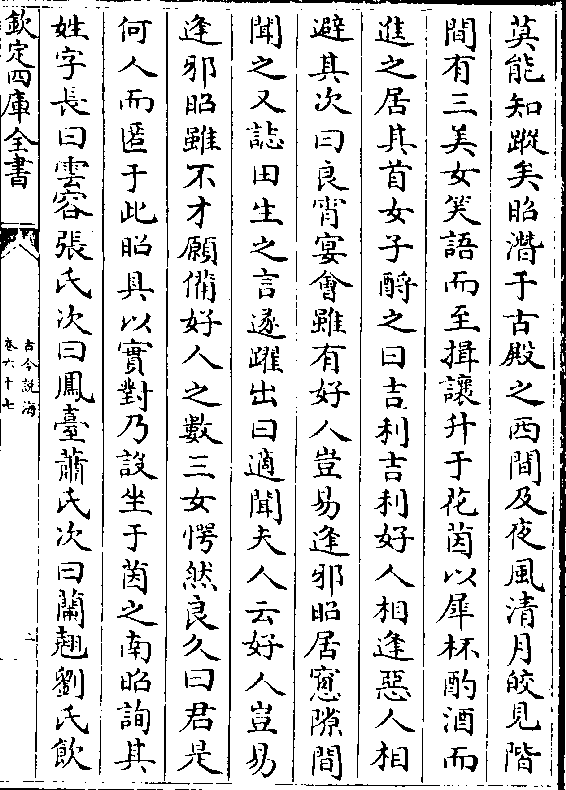 莫能知蹤矣昭潛于古殿之西間及夜風清月皎見階
間有三美女笑語而至揖讓升于花茵以犀杯酌酒而
進之居其首女子酹之曰吉利吉利好人相逢惡人相
避其次曰良宵宴會雖有好人豈易逢邪昭居窻隙間
聞之又誌田生之言遂躍出曰適聞夫人云好人豈易
逢邪昭雖不才願備好人之數三女愕然良久曰君是
何人而匿于此昭具以實對乃設坐于茵之南昭詢其
姓字長曰雲容張氏次曰鳳臺蕭氏次曰蘭翹劉氏飲
欽定四庫全書
古今說海
卷六十七